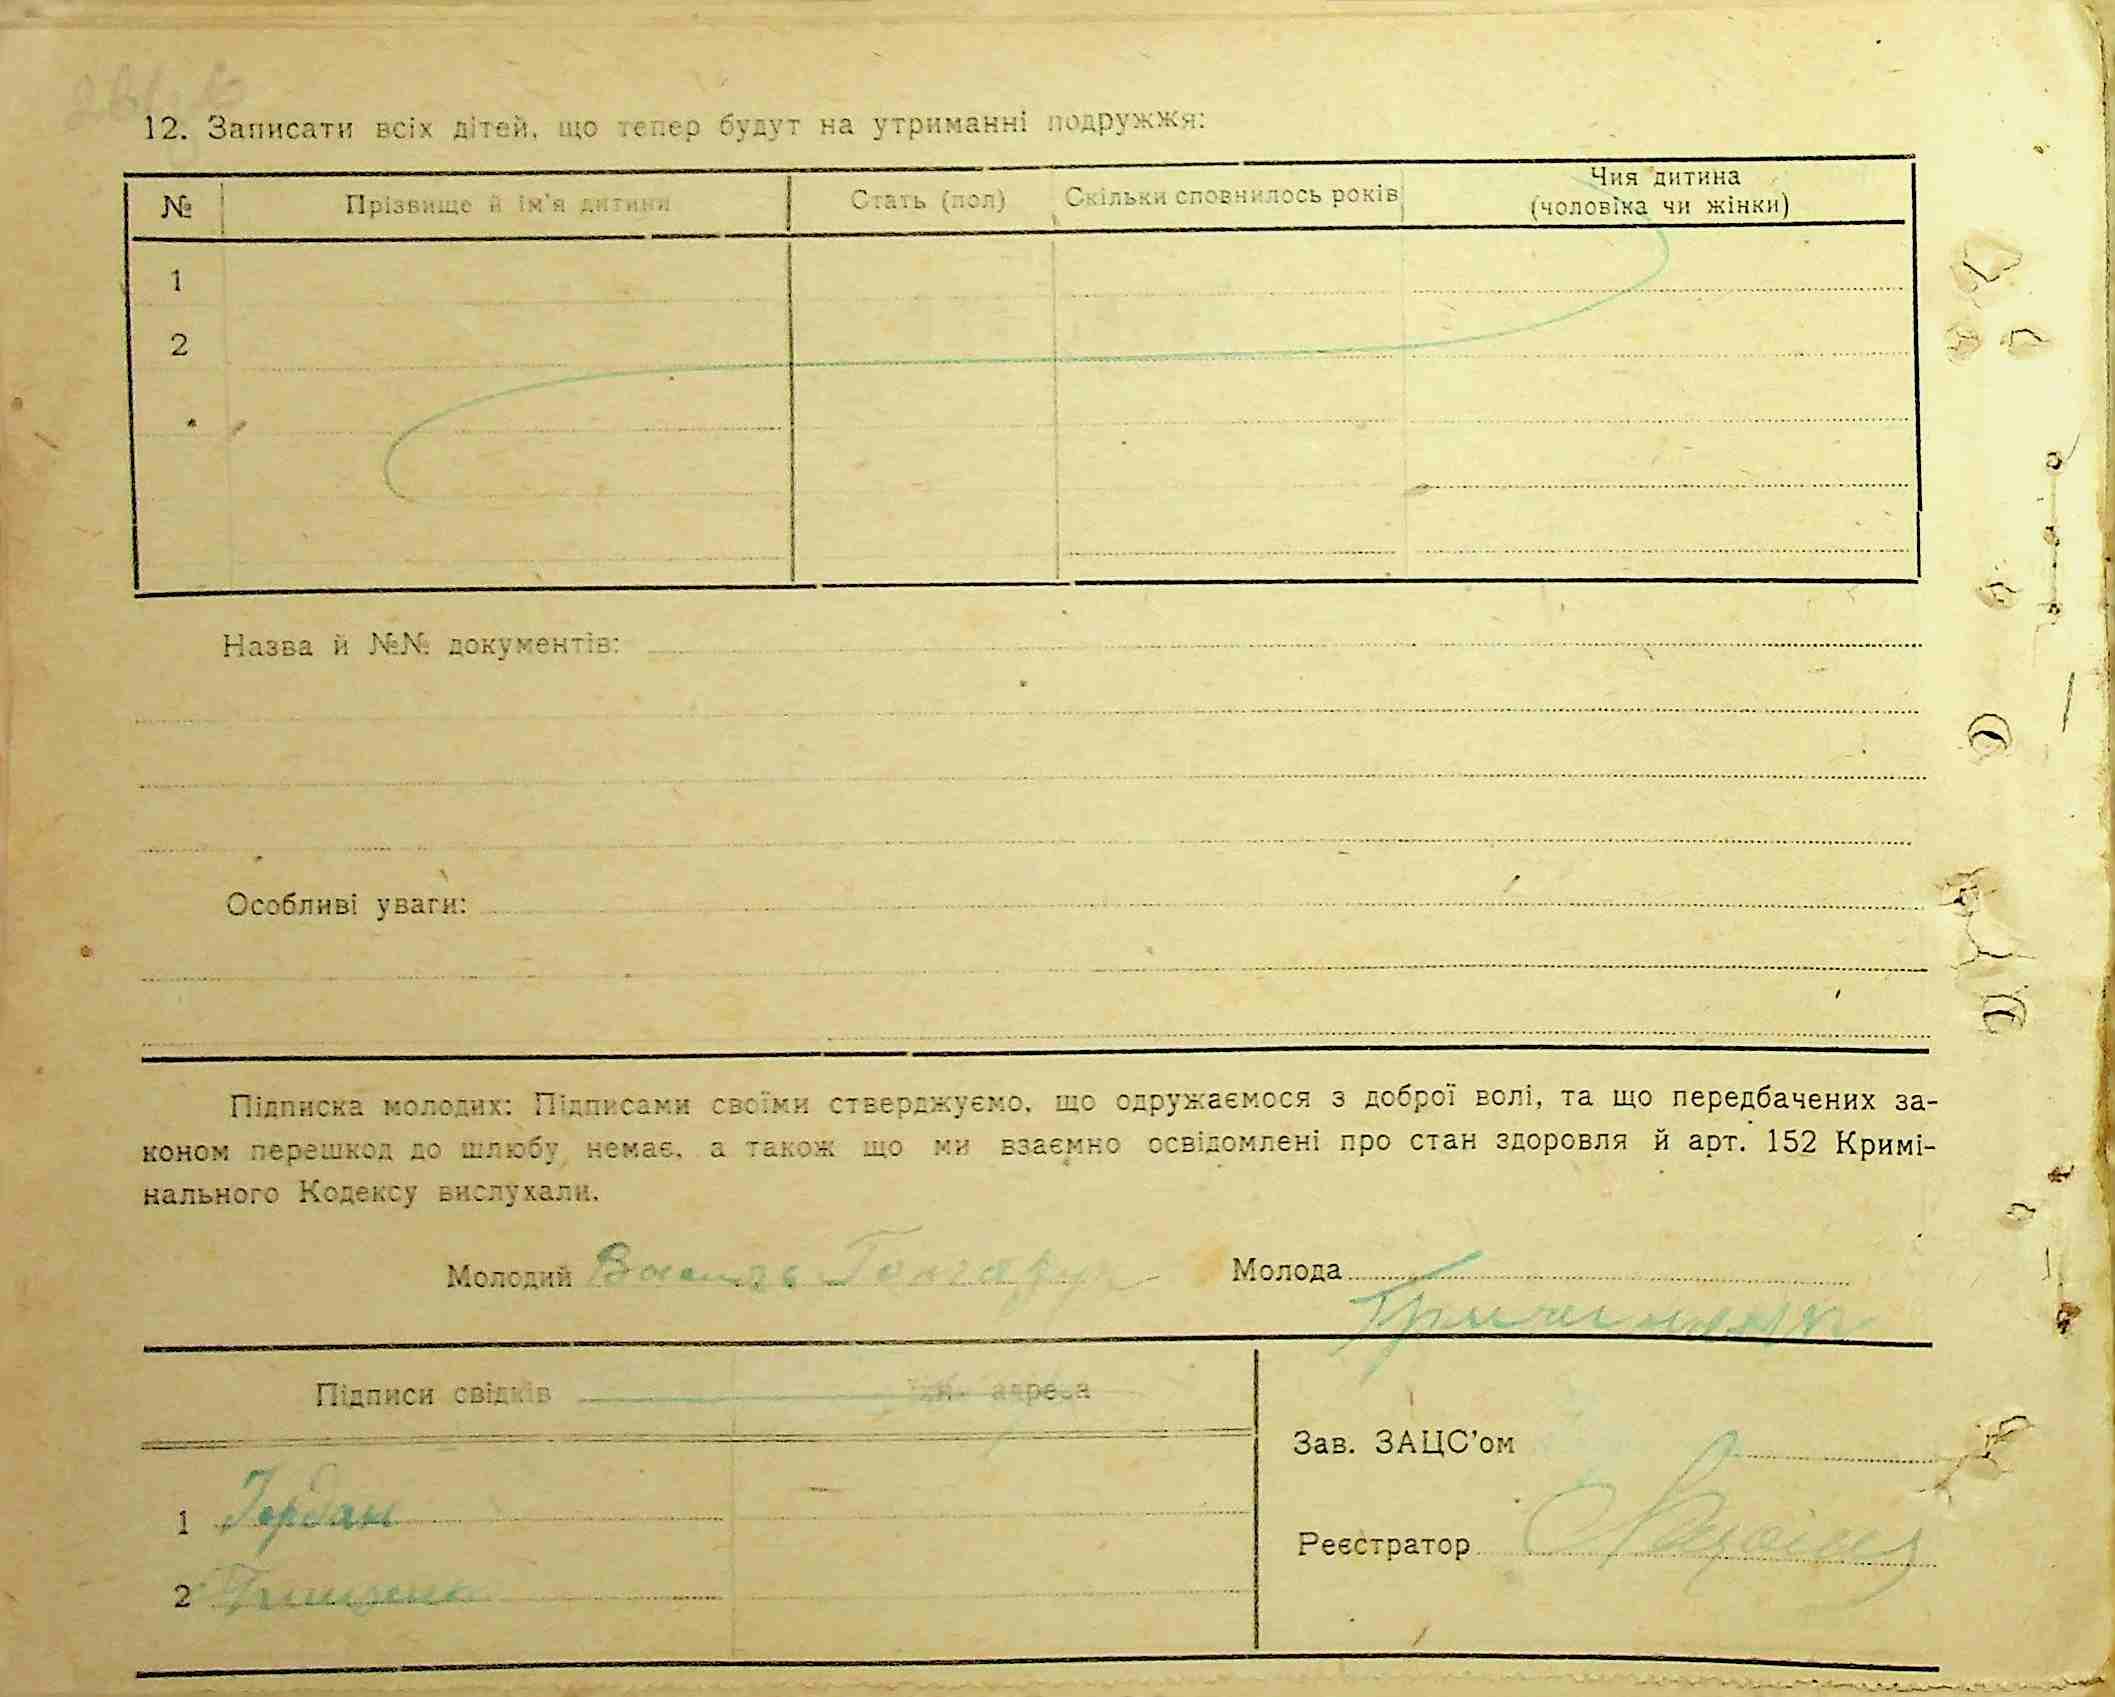 12. Записати всіх дітей, що тепер будут на утриманні подружжя:
№ Прізвище й ім'я дитини Стать (пол) Скільки сповнилось років Чия дитина (чоловіка чи жінки)
1
2
Назва й №№ документів:
Особливі уваги:
Підписка молодих: Підписами своїми стверджуємо, що одружаємося з доброї волі, та що передбачених за-
коном перешкод до шлюбу немає, а також що ми взаємно освідомлені про стан здоровля й арт. 152 Кримі-
нального Кодексу вислухали.
Молодий Василь Гончарук Молода
Підписи свідків їхня адреса
Зав. ЗАЦС'ом
1 Гордан
Реєстратор
2